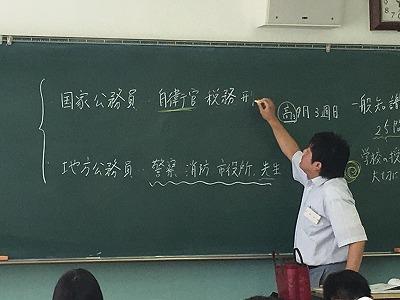 国家公務員・自衛官 税務 刑
高 9月3週目
一般知識
25問
学校の授
大切に
地方公務員・警察 消防 市役所 先生